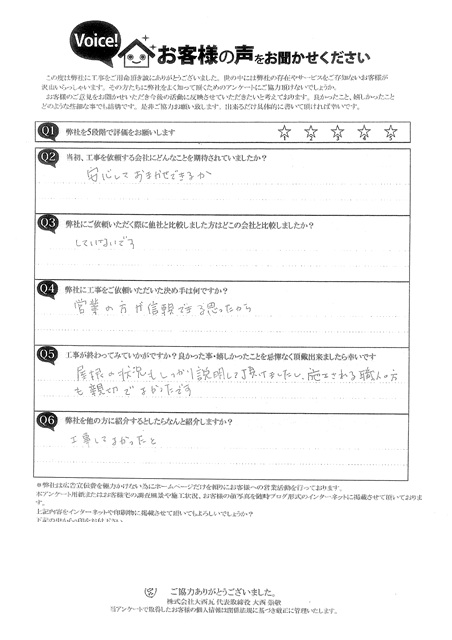 Voice!
お客様の声をお聞かせください
この度は弊社に工事をご用命頂き誠にありがとうございました。世の中には弊社の存在やサービスをご存知ないお客様が
沢山いらっしゃいます。その方たちに弊社をよく知って頂くためのアンケートにご協力頂けないでしょうか。
お客様のご意見をお聞かせいただき今後の活動に反映させていただきたいと考えております。良かったこと、嬉しかったこと
どのような些細な事でも結構です。是非ご協力お願い致します。出来るだけ具体的に書いて頂ければ幸いです。
Q1 弊社を5段階で評価をお願いします
1 2 3 4 5
Q2 当初、工事を依頼する会社にどんなことを期待されていましたか？
安心しておまかせできるか
Q3 弊社にご依頼いただく際に他社と比較しました方はどこの会社と比較しましたか？
していないです
Q4 弊社に工事をご依頼いただいた決め手は何ですか？
営業の方が信頼できる思ったから
Q5 工事が終わってみていかがですか？良かった事・嬉しかったことを忌憚なく頂戴出来ましたら幸いです
屋根の状況もしっかり説明して頂けましたし、施工される職人の方
も親切でよかったです
Q6 弊社を他の方に紹介するとしたらなんと紹介しますか？
工事してよかったと
※弊社は広告宣伝費を極力かけない為にホームページだけを頼りにお客様への営業活動を行っております。
本アンケート用紙またはお客様宅の調査風景や施工状況、お客様の顔写真を随時ブログ形式のインターネットに掲載させて頂いております。
上記内容をインターネットや印刷物に掲載させて頂いてもよろしいでしょうか？
ご協力ありがとうございました。
株式会社大西瓦 代表取締役 大西
当アンケートで取得したお客様の個人情報は関係法規に基づき厳正に管理いたします。